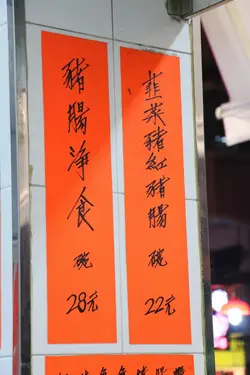 豬腸淨食 碗 28元
韮菜豬紅豬腸 碗 22元